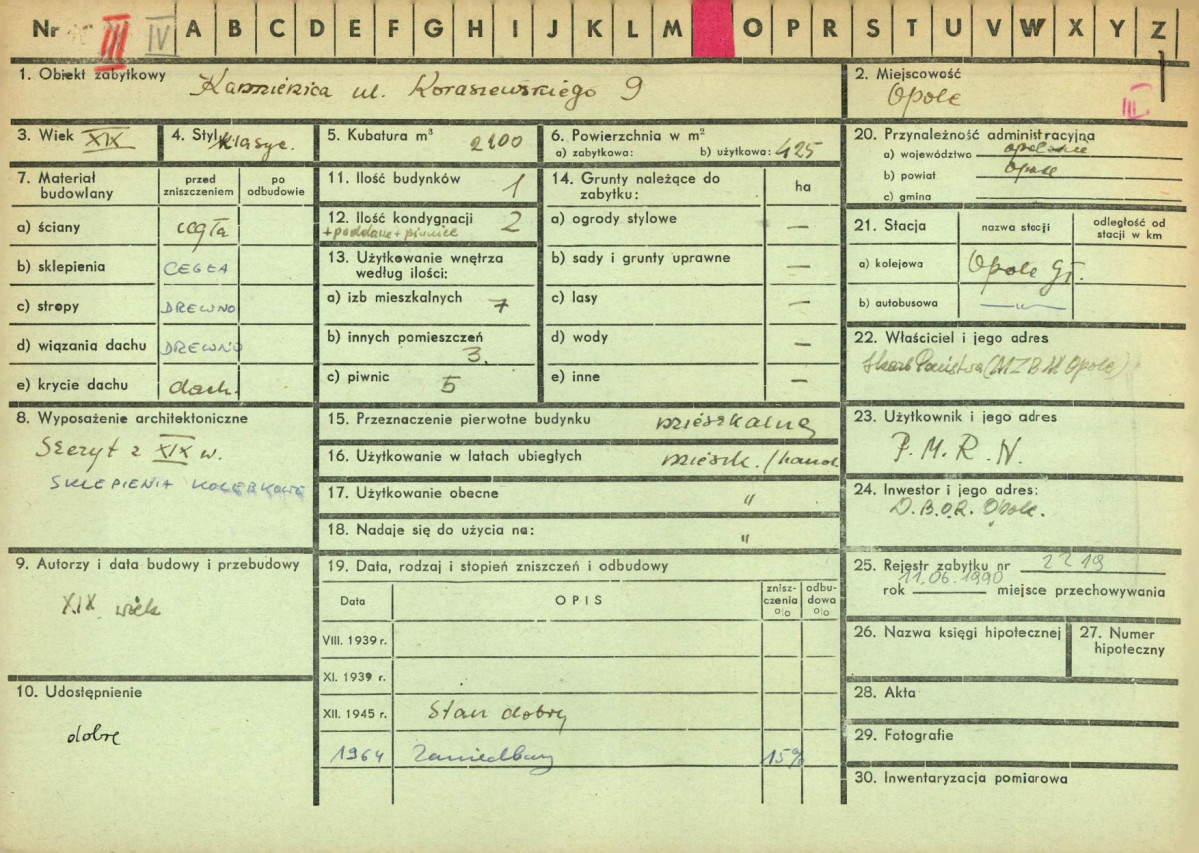 Nr III IV A B C D E F G H I J K L M O P R S T U V W X Y Z
1. Obiekt zabytkowy Kamienica ul. Koraszewskiego 9
2. Miejscowość
Opole
III
3. Wiek XIX
4. Styl klasyc.
5. Kubatura m³ 2100
6. Powierzchnia w m²
a) zabytkowa: b) użytkowa: 425
20. Przynależność administracyjna
a) województwo opolskie
b) powiat Opole
c) gmina
7. Materiał budowlany
przed zniszczeniem
po odbudowie
a) ściany cegła
b) sklepienia CEGŁA
c) stropy DREWNO
d) wiązania dachu DREWNO
e) krycie dachu dach.
11. Ilość budynków 1
12. Ilość kondygnacji 2
+poddasze+piwnice
13. Użytkowanie wnętrza
według ilości:
a) izb mieszkalnych 7
b) innych pomieszczeń
3.
c) piwnic 5
14. Grunty należące do
zabytku:
ha
a) ogrody stylowe —
b) sady i grunty uprawne —
c) lasy —
d) wody —
e) inne —
21. Stacja
nazwa stacji
odległość od
stacji w km
a) kolejowa Opole Gł.
b) autobusowa —"—
22. Właściciel i jego adres
Skarb Państwa (MZBM Opole)
8. Wyposażenie architektoniczne
Szczyt z XIX w.
SKLEPIENIA KOLEBKOWE
15. Przeznaczenie pierwotne budynku mieszkalne
16. Użytkowanie w latach ubiegłych mieszk./handl
17. Użytkowanie obecne "
18. Nadaje się do użycia na: "
23. Użytkownik i jego adres
P. M. R. N.
24. Inwestor i jego adres:
D.B.O.R. Opole.
9. Autorzy i data budowy i przebudowy
XIX wiek
19. Data, rodzaj i stopień zniszczeń i odbudowy
Data
OPIS
znisz-
czenia
o|o
odbu-
dowa
o|o
VIII. 1939 r.
XI. 1939 r.
XII. 1945 r. Stan dobry
1964 Zaniedbany 15%
25. Rejestr zabytku nr 2219
11.06.1990
rok miejsce przechowywania
26. Nazwa księgi hipotecznej
27. Numer
hipoteczny
10. Udostępnienie
dobre
28. Akta
29. Fotografie
30. Inwentaryzacja pomiarowa